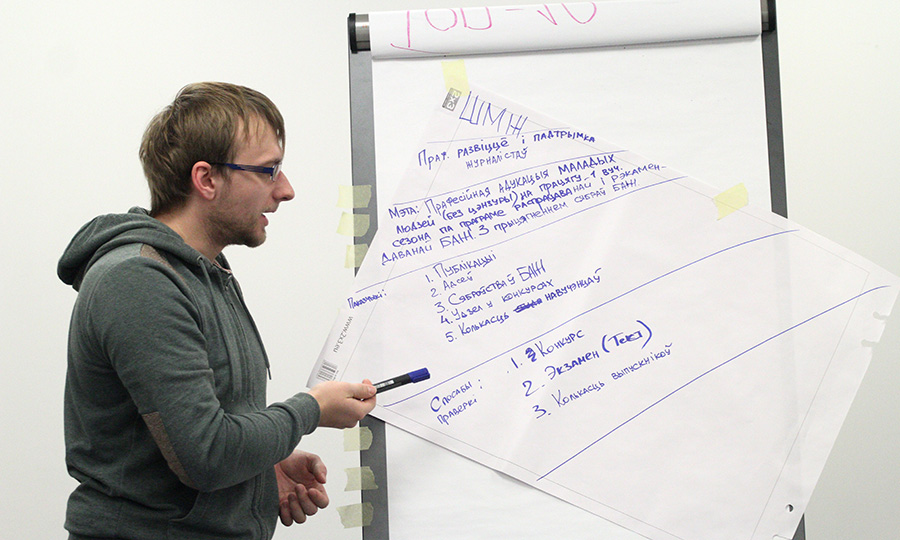 ШМЖ
Праф. развіццё і падтрымка
журналістаў
Мэта: Прафесійная адукацыя маладых
людзей (без цэнзуры) на працягу 1 вуч.
сезона па праграме распрацаванай і рэкамен-
даванай БАЖ з прыцягненнем сяброў БАЖ
Паказчыкі:
1. Публікацыі
2. Адсеў
3. Сяброўства ў БАЖ
4. Удзел у конкурсах
5. Колькасць навучэнцаў
Спосабы
праверкі:
1. Конкурс
2. Экзамен (Тэст)
3. Колькасць выпускнікоў
www.2x3.ru
2x3